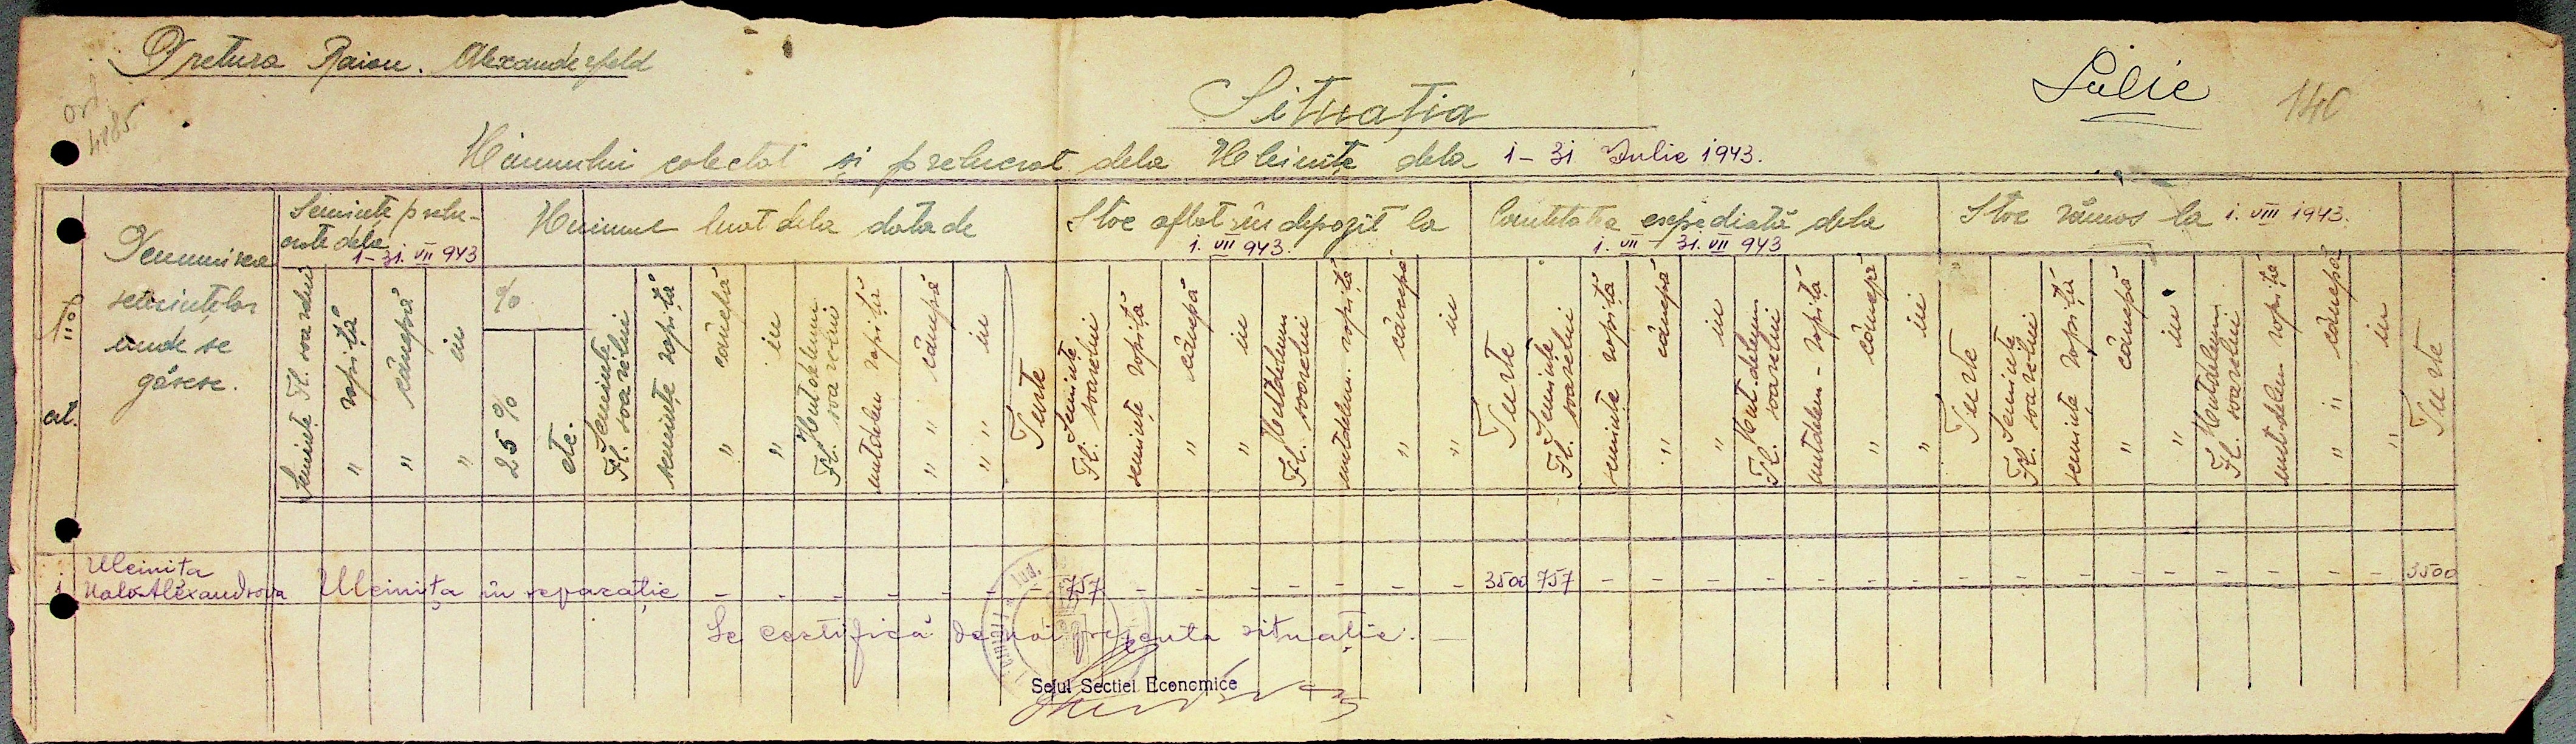 Pretura Raion. Alexanderfeld
ord
4885
Iulie
140
Situația
Uleiurilor colectat și prelucrat dela Uleinițe dela 1-31 Iulie 1943.
No
crt.
Denumirea
semințelor
unde se
găsesc.
Semințe prelu-
crate dela
1-31. VII 943
Uleiuri luat dela data de
Stoc aflat în depozit la
1. VII 943.
Cantitatea expediată dela
1. VII - 31. VII 943
Stoc rămas la 1. VIII 1943.
Semințe Fl. soarelui
" ropiță
" cânepă
" in
%
25%
etc.
Semințe
Fl. soarelui
semințe ropiță
" cânepă
" in
Untdelemn
Fl. soarelui
untdelem ropiță
" " cânepă
" " in
Turte
Semințe
Fl. soarelui
semințe ropiță
" cânepă
" in
Untdelemn
Fl. soarelui
untdelem. ropiță
" cânepă
" in
Turte
Semințe
Fl. soarelui
semințe ropiță
" cânepă
" in
Unt-delemn
Fl. soarelui
untdelem - ropiță
" cânepă
" in
Turte
Semințe
Fl. soarelui
semințe ropiță
" cânepă
" in
Untdelemn
Fl. soarelui
unt-delem ropiță
" " cânepă
" in
Turte
1 Uleinița
Malo-Alexandrova Uleinița în reparație - - - - - - - 757 - - - - - - - 3500 757 - - - - - - - - - - - - - - - - 3500
Se certifică de noi prezenta situație. -
Seful Sectiei Economice